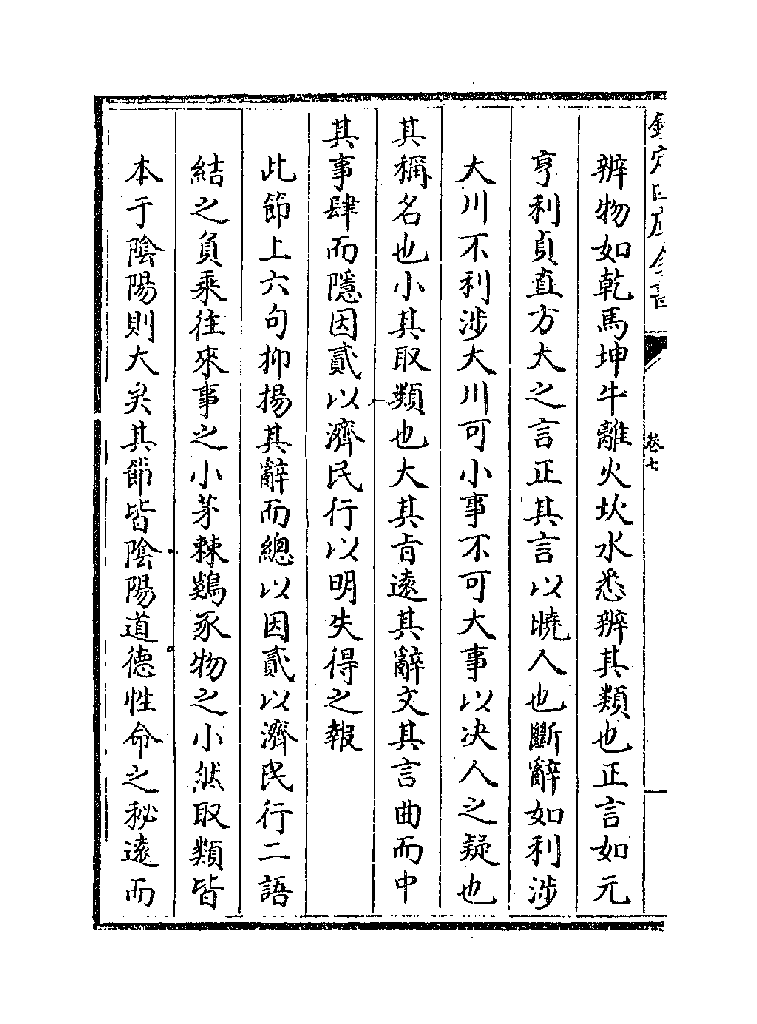 欽定四庫全書
卷七
辨物如乾馬坤牛離火坎水悉辨其類也正言如元
亨利貞直方大之言正其言以曉人也斷辭如利涉
大川不利涉大川可小事不可大事以决人之疑也
其稱名也小其取類也大其㫖逺其辭文其言曲而中
其事肆而隱因貳以濟民行以明失得之報
此節上六句抑揚其辭而總以因貳以濟民行二語
結之負乘往來事之小茅棘鷄豕物之小然取類皆
本于陰陽則大矣其節皆陰陽道德性命之秘逺而